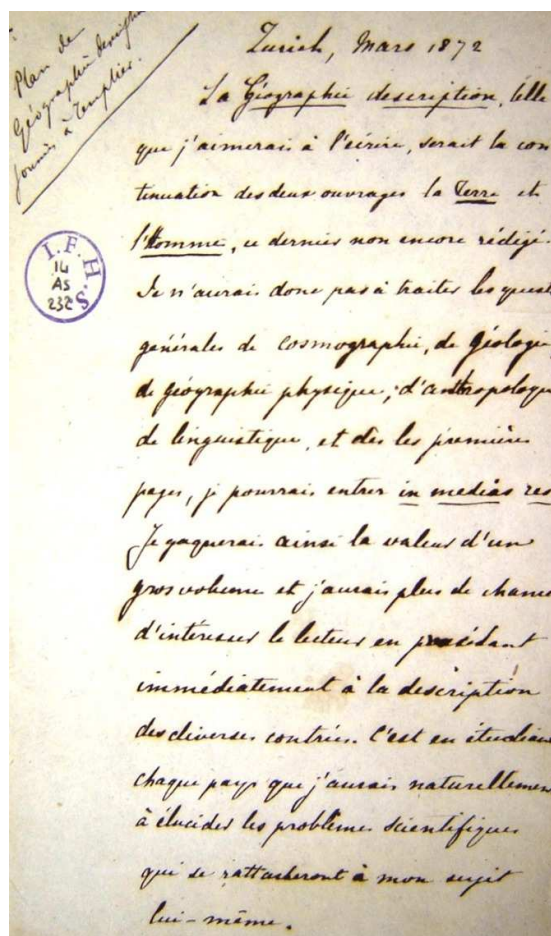 Plan de
Géographie
fournis à Templier.
I. F. H. S.
14
AS
232
Zurich, Mars 1872
La Géographie description, telle
que j'aimerais à l'écrire, serait la con
tinuation des deux ouvrages la Terre et
l'Homme, ce dernier non encore rédigé.
Je n'aurais donc pas à traiter les quest
générales de cosmographie, de géologie
de géographie physique, d'anthropologie
de linguistique, et dès les premières
pages, je pourrais entrer in medias res
Je gagnerais ainsi la valeur d'un
gros volume et j'aurais plus de chance
d'intéresser le lecteur en procédant
immédiatement à la description
des diverses contrées. C'est en étudian
chaque pays que j'aurais naturellemen
à élucider les problèmes scientifiques
qui se rattacheront à mon sujet
lui-même.